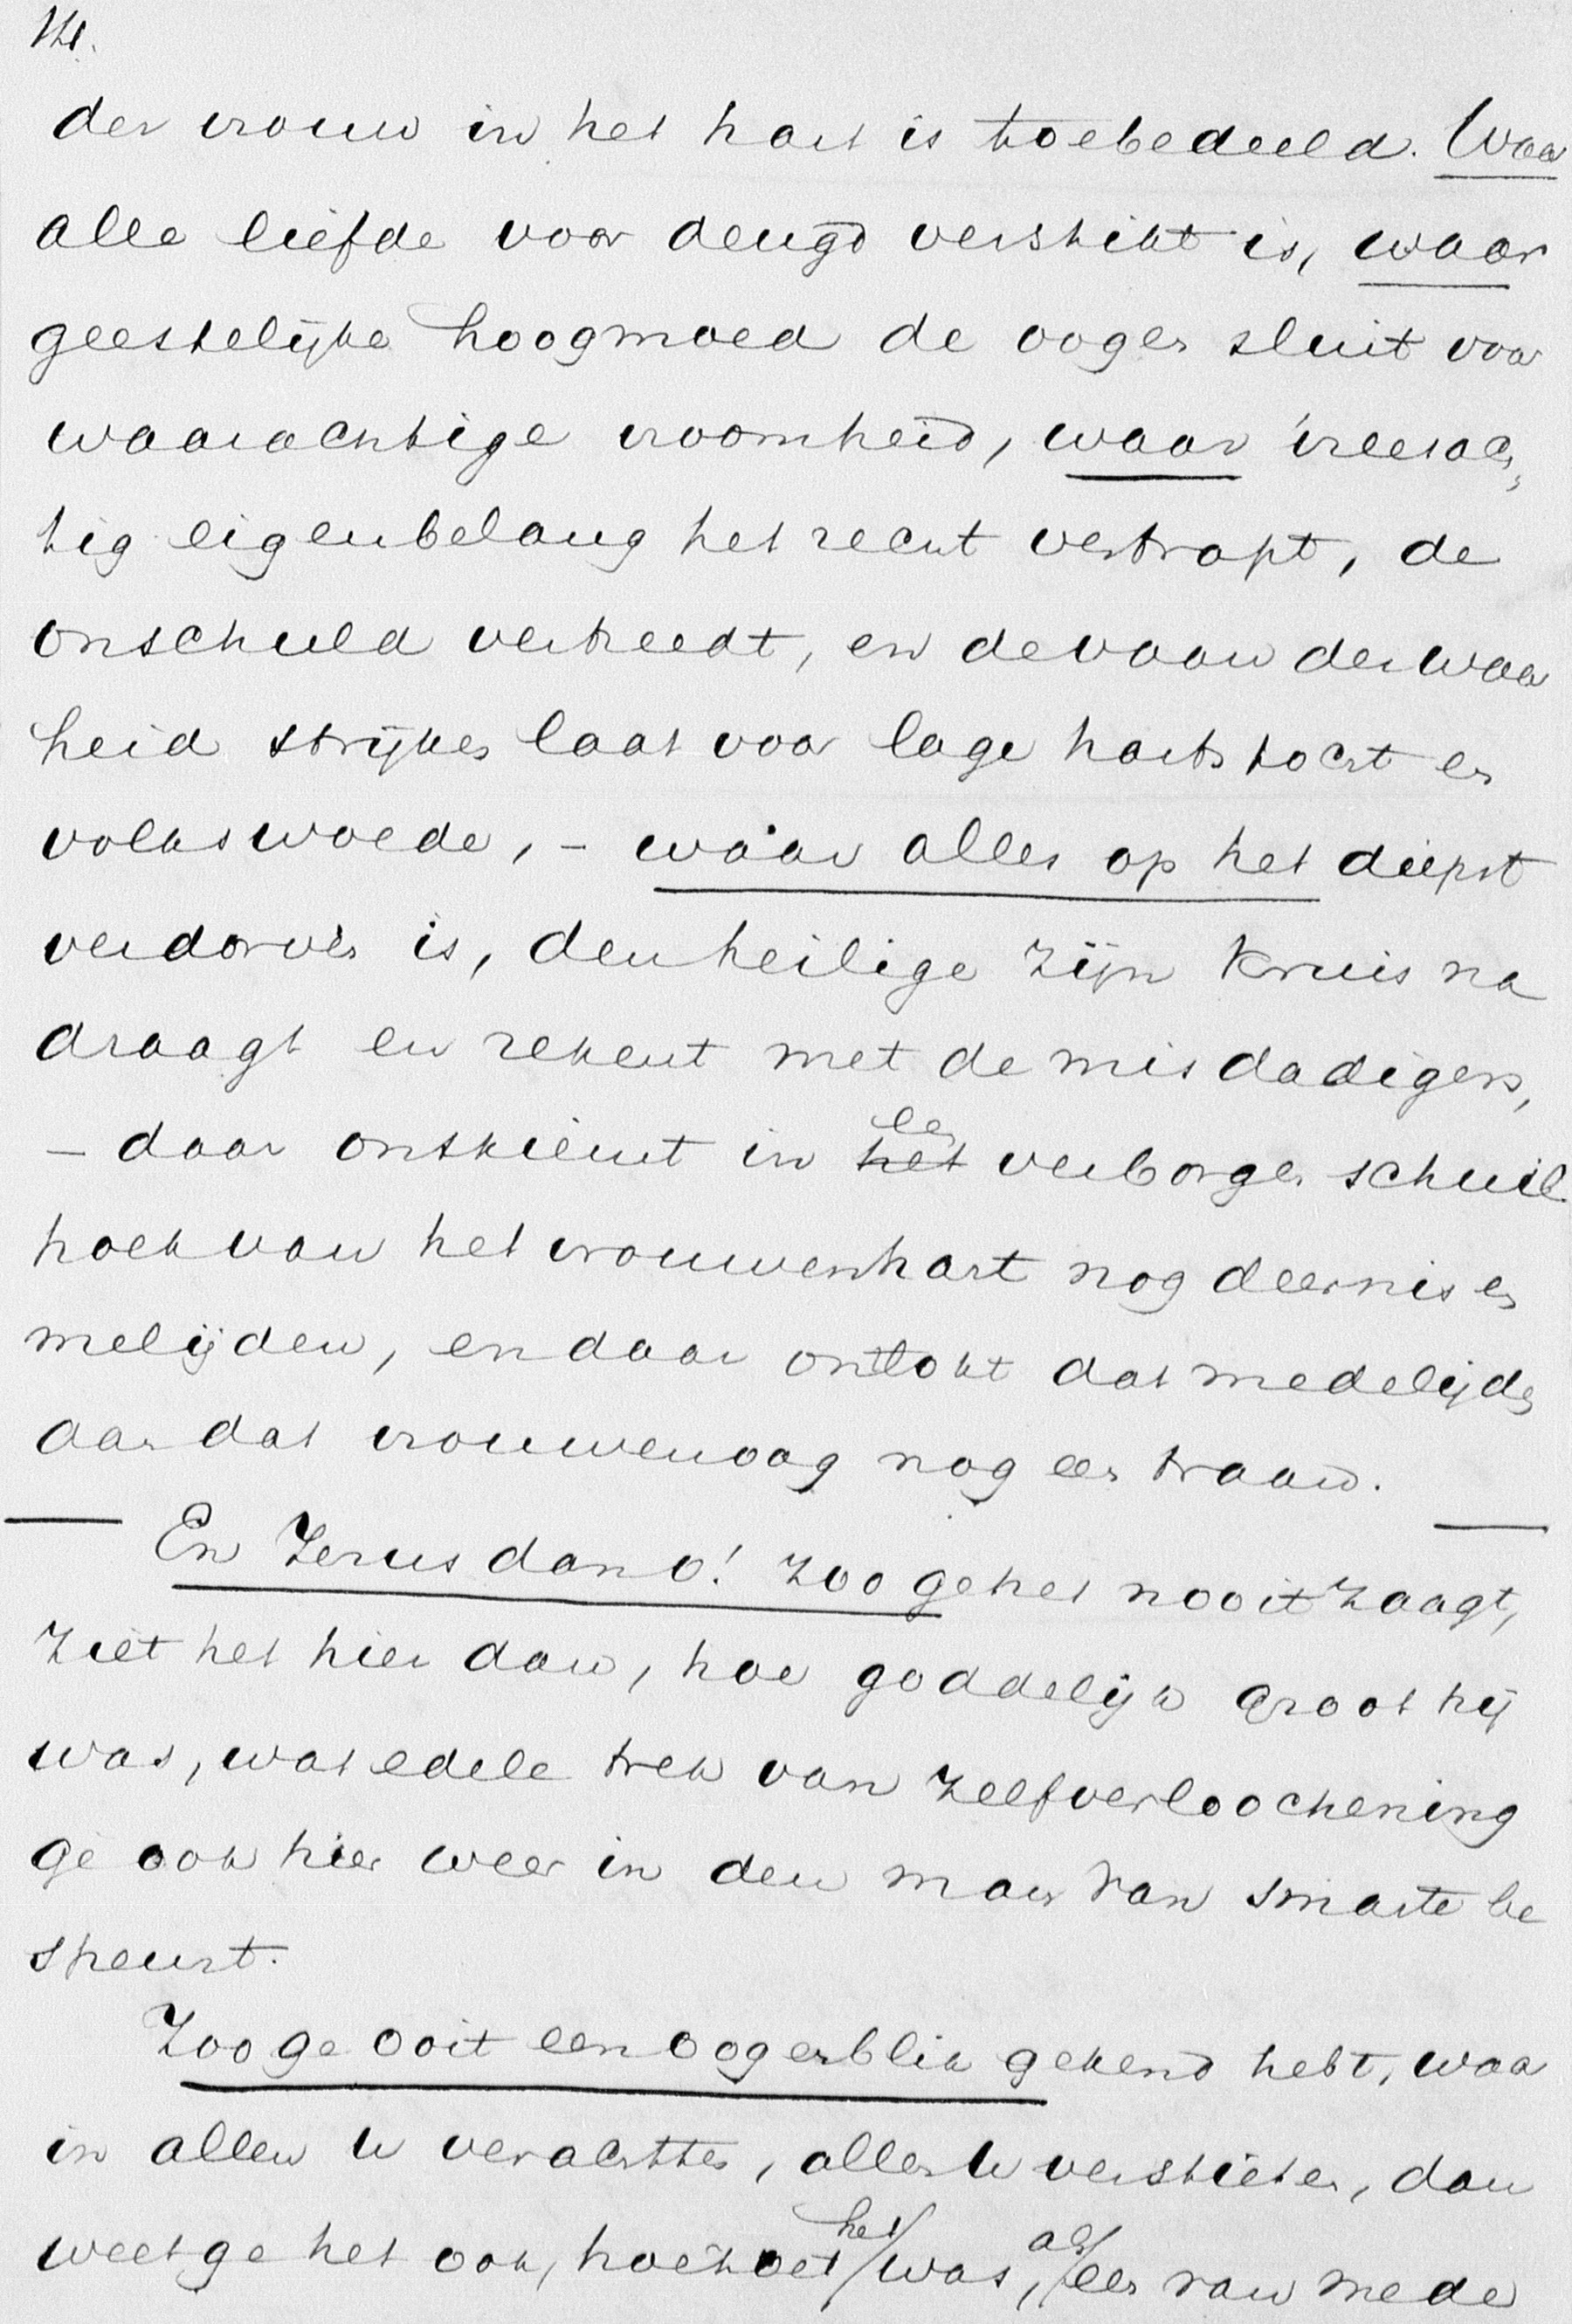 der vrouw in het hart is toebedeeld. Waar
alle liefde voor deugd verstikt is, waar
geestelijke hoogmoed de oogen sluit voor
waarachtige vroomheid, waar vreesach,
tig eigenbelang het recht vertrapt, de
onschuld vertreedt, en de vaan der waar
heid strijken laat voor lage hartstocht en
volkswoede, - waar alles op het diepst
verdorven is, den heilige zijn kruis na
draagt en rekent met de misdadigers,
- daar ontkiemt in het een verborgen schuil
hoek van het vrouwenhart nog deernis en
melijden, en daar ontlokt dat medelijden
aan dat vrouwenoog nog een traan.
En Jezus dan o! zoo ge het nooit zaagt,
ziet het hier dan, hoe goddelijk groot hij
was, wat edele trek van zelfverloochening
ge ook hier weer in den man van smarte be
speurt.
Zoo ge ooit een oogenblik gekend hebt, waar
in allen u verachtten, allen u verstieten, dan
weet ge het ook, hoe zoet het was, als een van mede